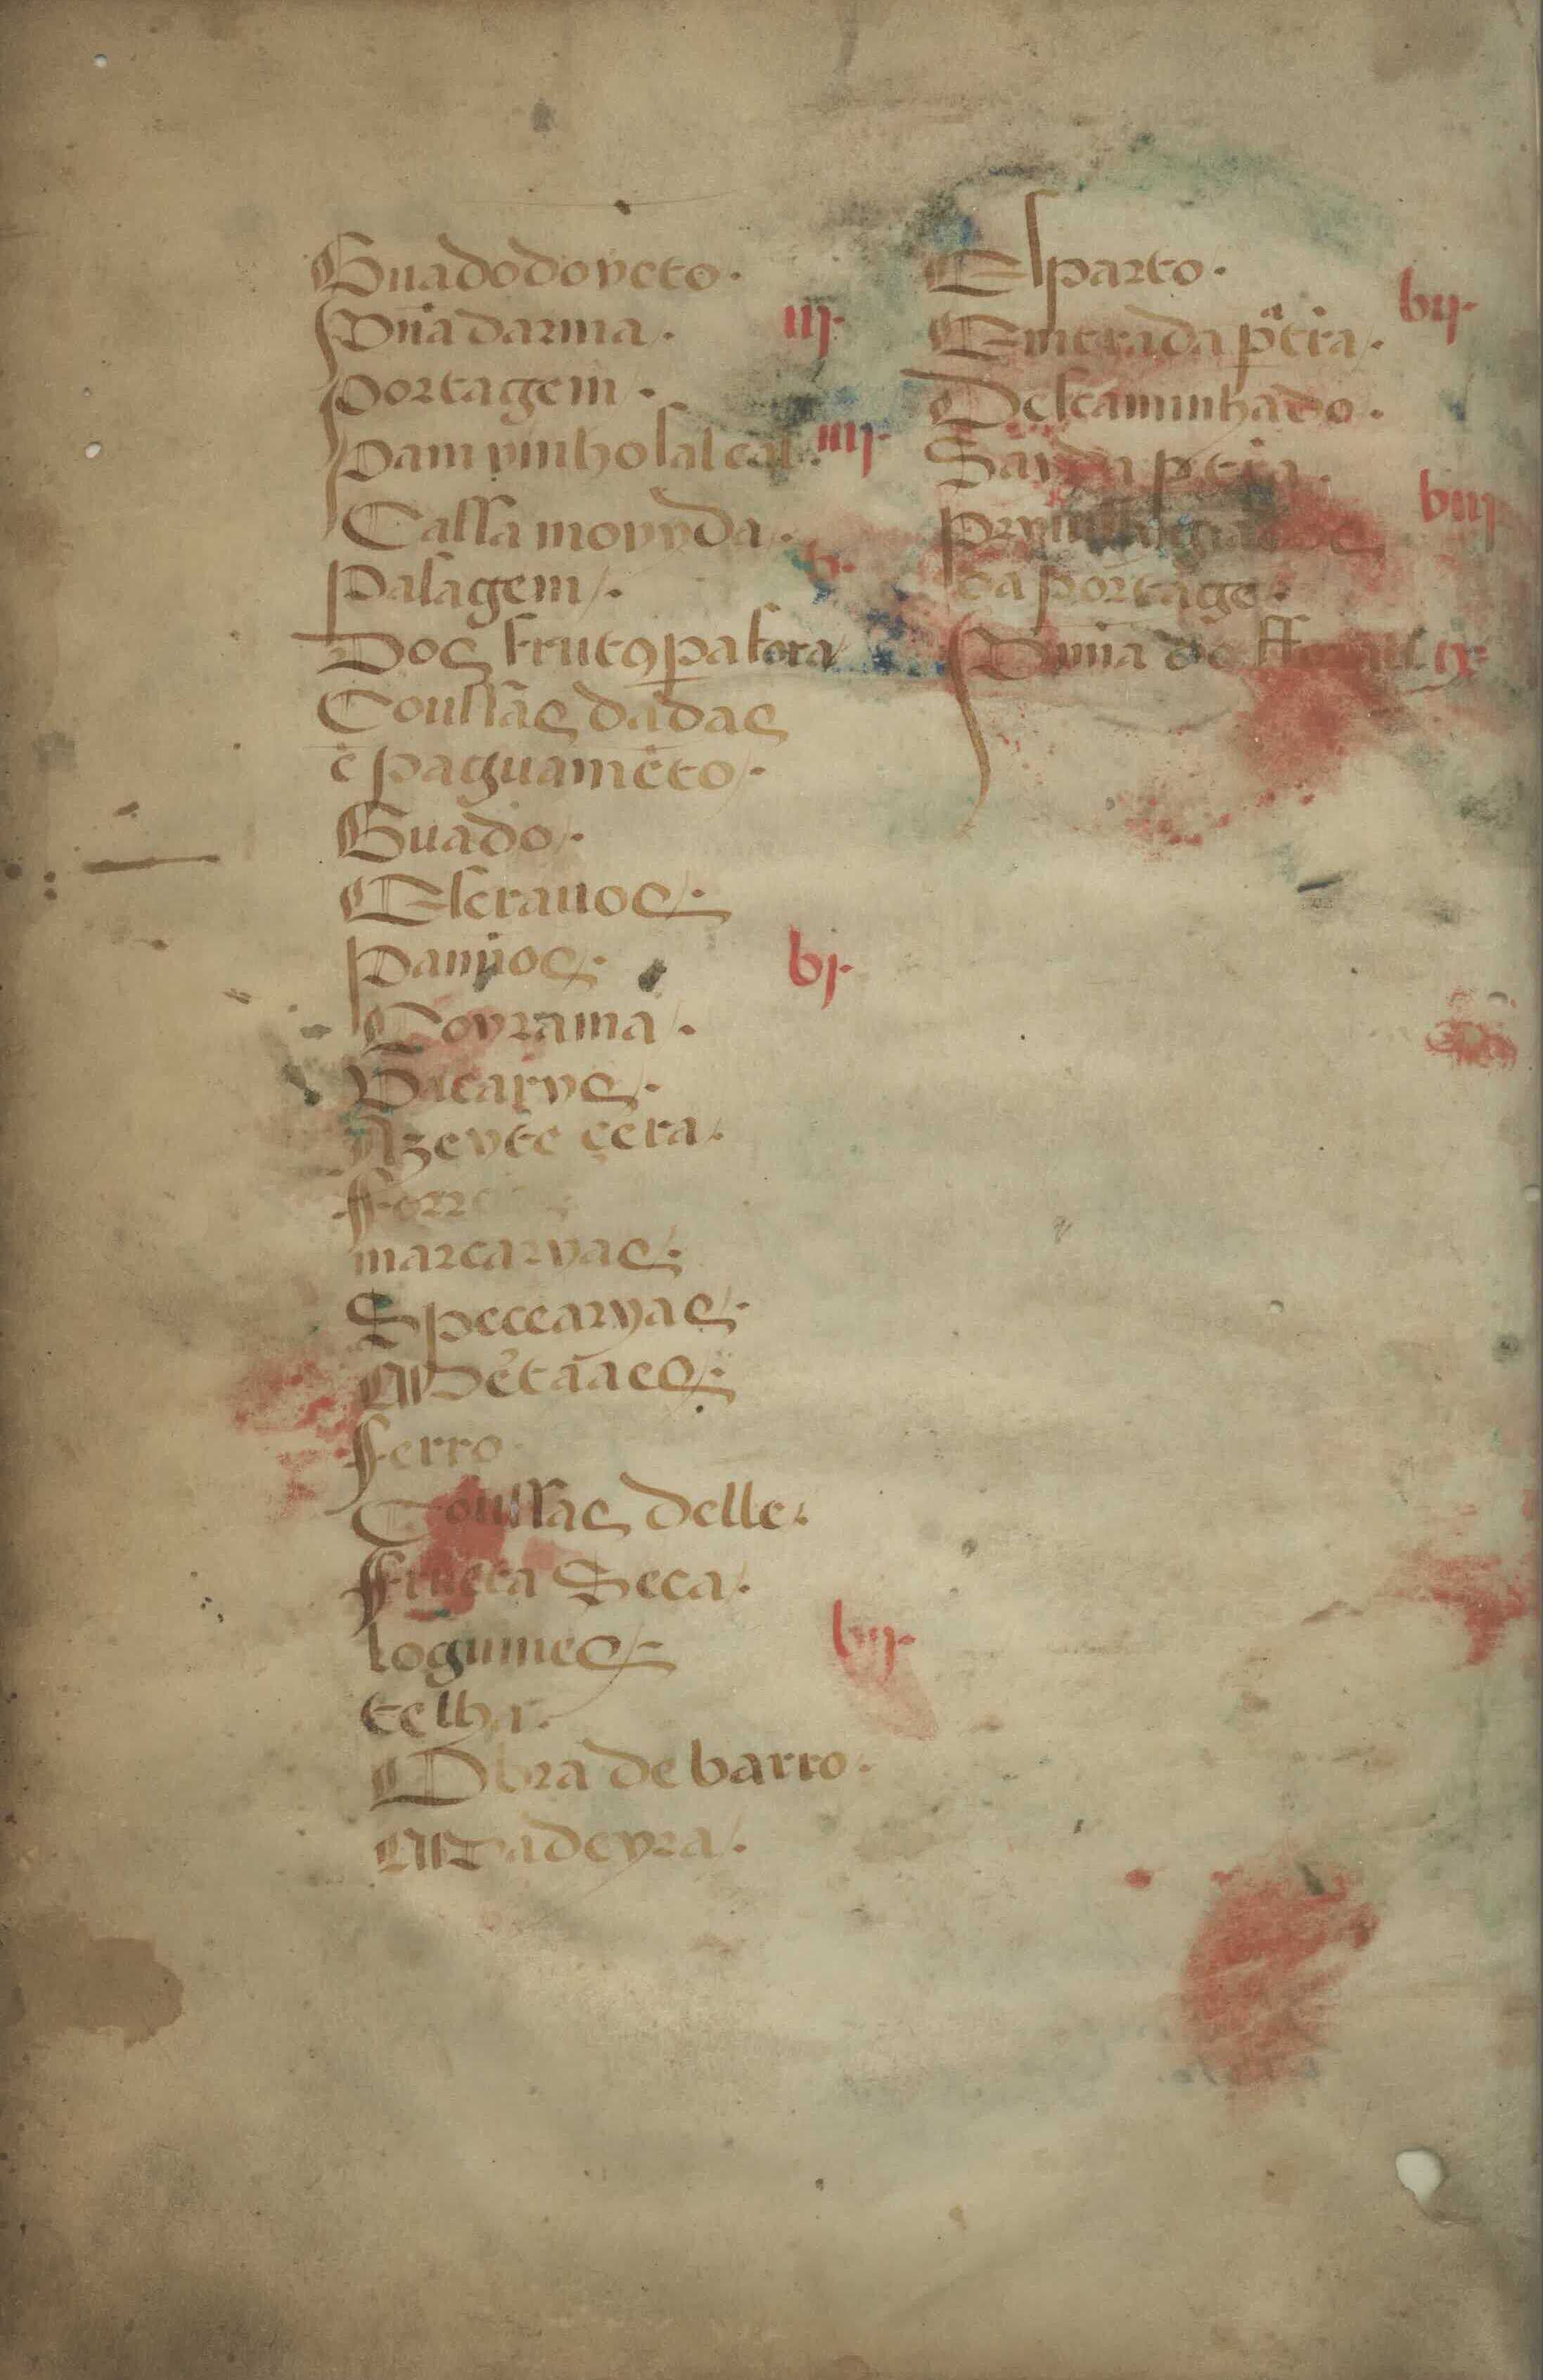 Guado do veto.
Pña darma. iij.
portagem.
pam vinho sal cal. iiij.
Cassa movyda.
pasagem. b.
Dos frutos pa fora
Coussas dadas
ẽ paguamẽto.
Guado.
Escrauos.
pannos. bj.
Coyrama.
Azeyte çera.
marcaryas.
Specearyas.
Metaaes.
ferro
Coussas delle.
fructa Seca.
legumes. bij.
telha.
Obra de barro.
Madeyra.
Esparto. bij.
Emtrada p terra.
Descaminhado.
Sayda p terra. biij
da portage.
Pena do fforall ix.